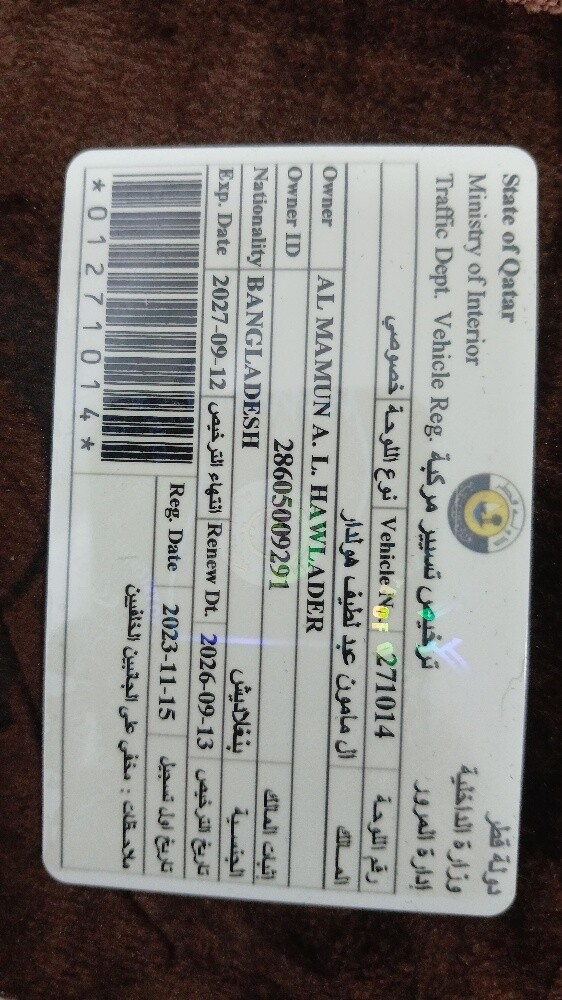 State of Qatar دولة قطر
Ministry of Interior وزارة الداخلية
Traffic Dept. Vehicle Reg. ترخيص تسيير مركبة إدارة المرور
خصوصي نوع اللوحة Vehicle No. 271014 رقم اللوحة
ال مامون عبد لطيف هولدار المالك
Owner AL MAMUN A. L. HAWLADER
Owner ID 28605009291 اثبات المالك
Nationality BANGLADESH بنغلاديش الجنسية
Exp. Date 2027-09-12 انتهاء الترخيص Renew Dt. 2026-09-13 تاريخ الترخيص
Reg. Date 2023-11-15 تاريخ اول تسجيل
*01271014*
ملاحظات : مخفي على الجانبين الخلفيين